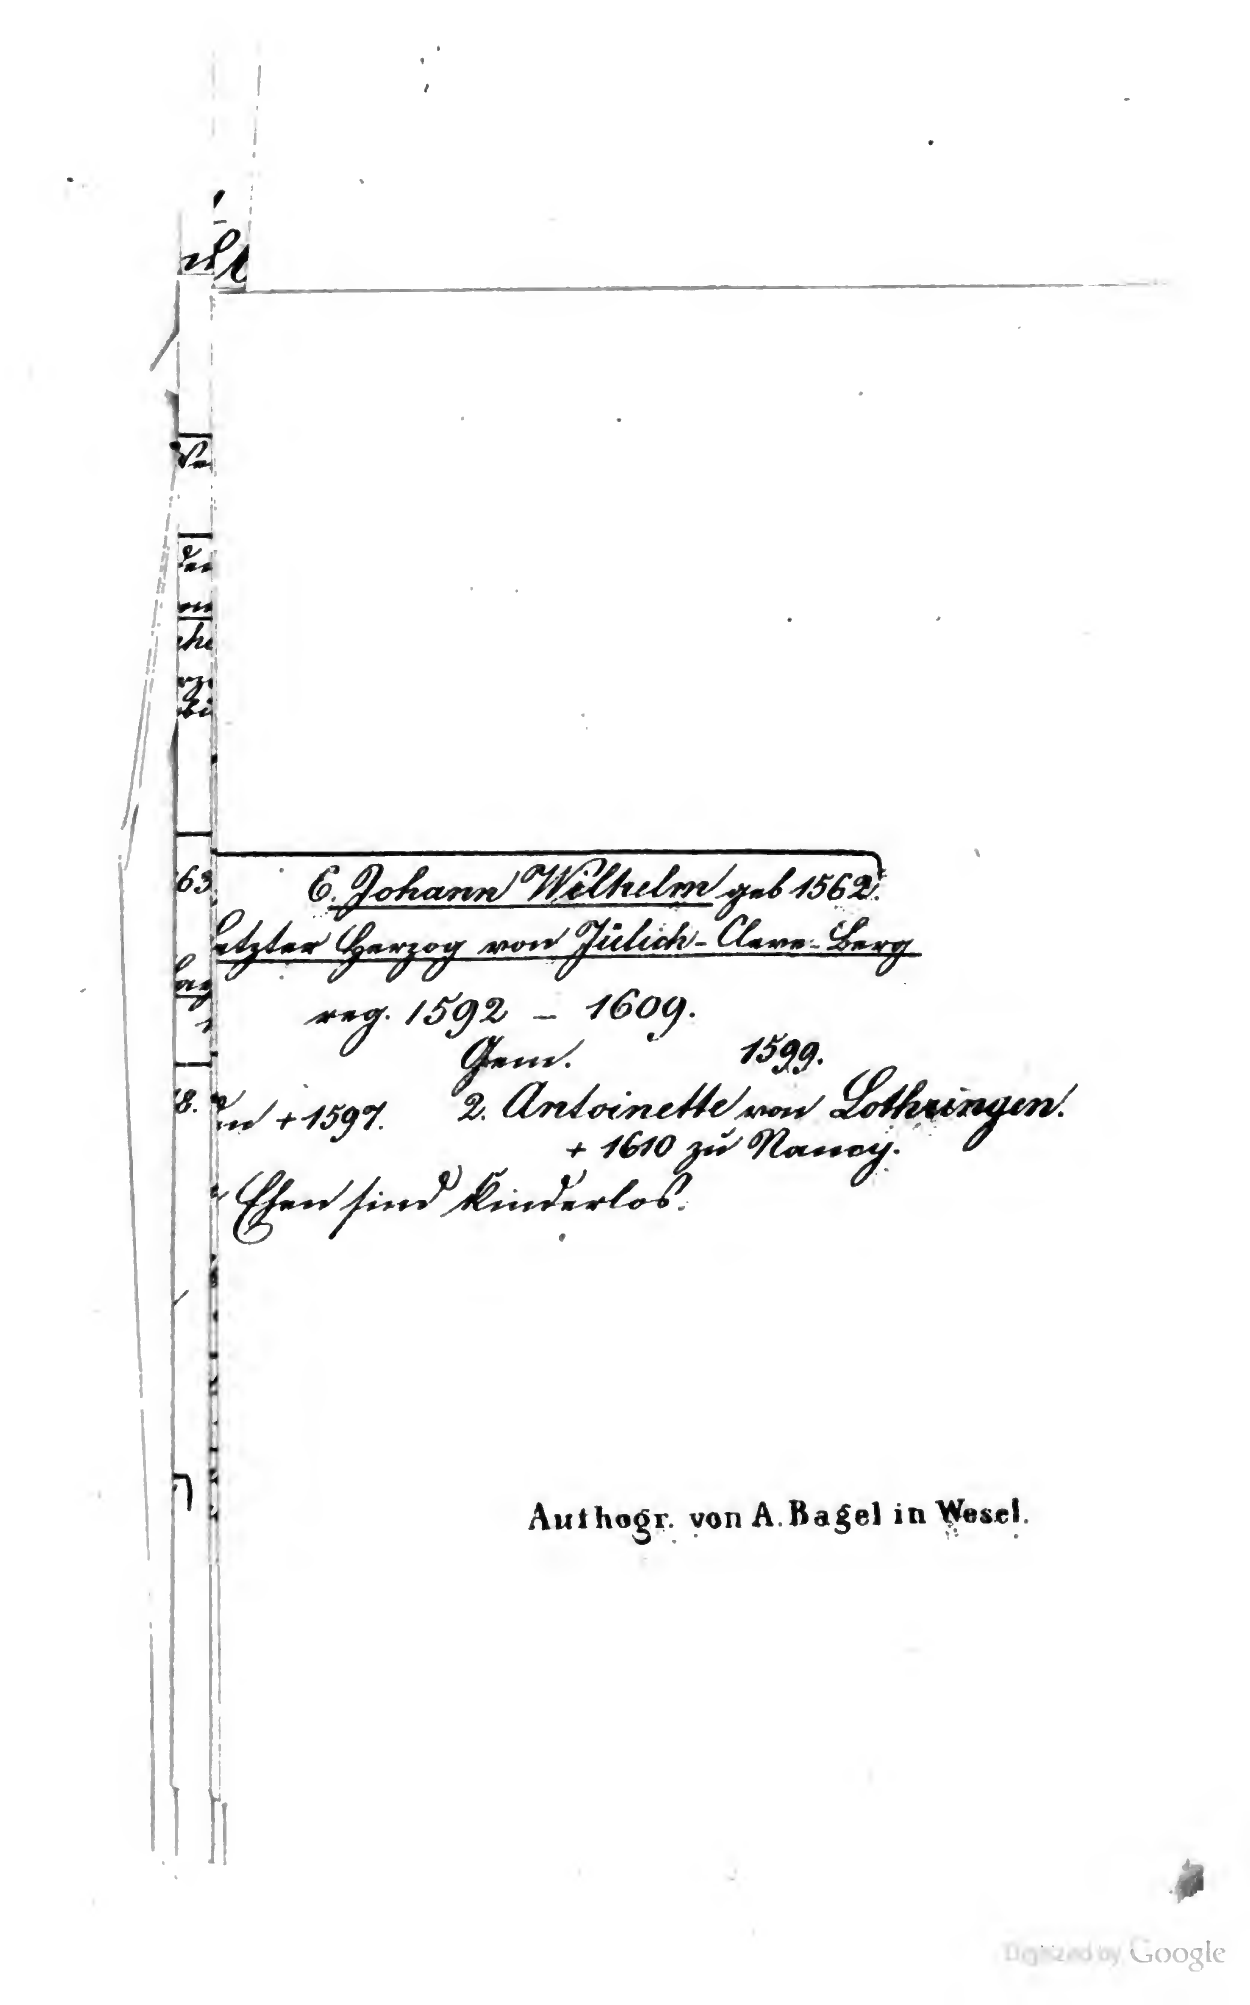 63
6. Johann Wilhelm geb 1562.
letzter Herzog von Jülich-Cleve-Berg
reg. 1592 – 1609.
Gem. 1599.
8. + 1597. 2. Antoinette von Lothringen.
+ 1610 zu Nancy.
Ehen sind kinderlos.
Authogr. von A. Bagel in Wesel.
Digitized by Google